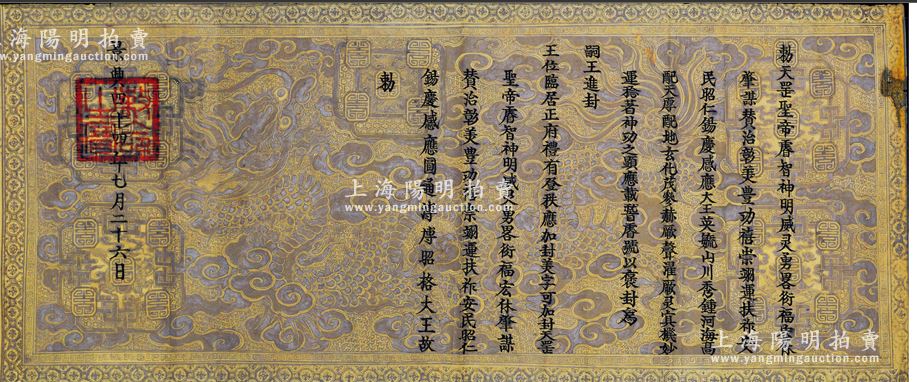 勅天罡聖帝睿智神明威灵勇畧衍福宏休
肇謀賛治彰美豊功禧崇翊運扶祚安
民昭仁錫慶感應大王英毓山川秀鍾河海高
配天厚配地玄化茂參赫厥聲濯厥灵寘幾妙
運稔著神功之顕應載晋睿號以褒封為
嗣王進封
王位臨居正府禮有登秩應加封美字可加封天罡
聖帝睿智神明威灵勇畧衍福宏休肇謀
賛治彰美豊功禧崇翊運扶祚安民昭仁
錫慶感應圓通溥博昭格大王故
勅
景興四十四年七月二十六日
上海陽明拍賣
www.yangmingauction.com
上海陽明拍賣
www.yangmingauction.com
上海陽明拍賣
www.yangmingauction.com
海陽明拍賣
www.yangmingauction.com